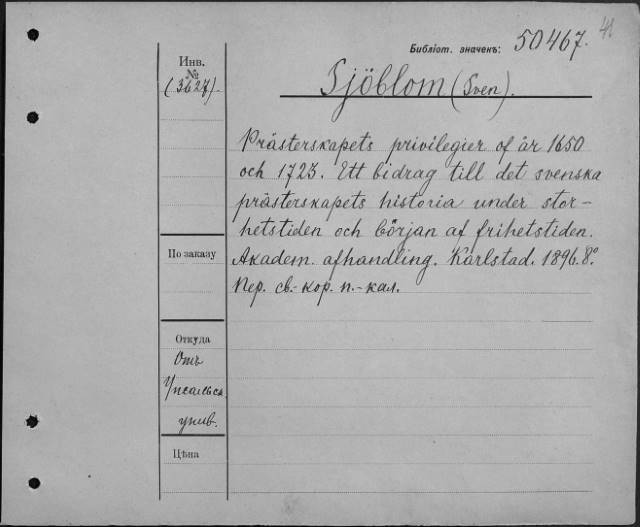 41
Библіот. значекъ: 50467.
Инв.
№
(3627).
Sjöblom (Sven).
Prästerskapets privilegier of år 1650
och 1723. Ett bidrag till det svenska
prästerskapets historia under stor-
hetstiden och början af frihetstiden.
Akadem. afhandling. Karlstad. 1896. 8°.
Пер. св.-кор. п.-кал.
По заказу
Откуда
Отъ
Упсальск.
унив.
Цѣна